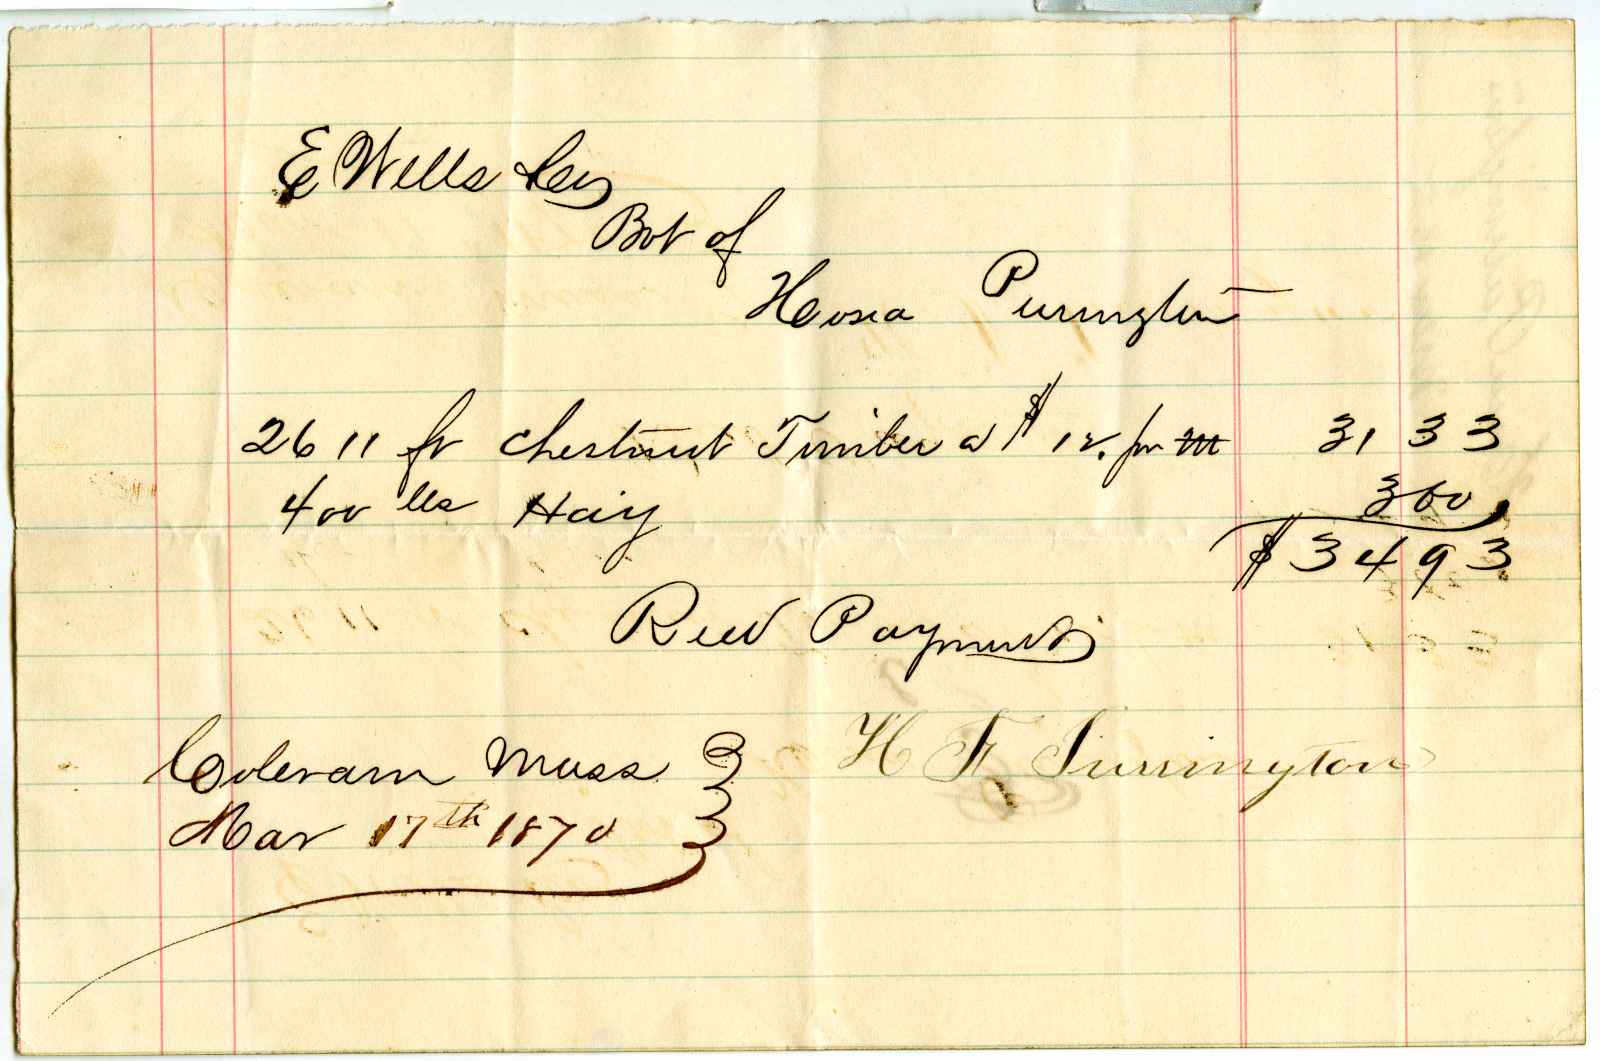 E Wells
Bot of
Hosea Purrington
2611 ft Chestnut Timber a $12. pr M 31 33
400 lbs Hay 3 60
$ 34 93
Recd Payment
H F Purrington
Coleram Mass
Mar 17th 1870